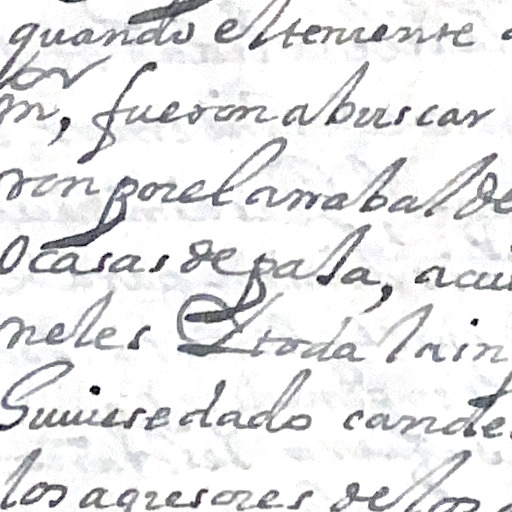 quando el teniente
or
m, fueron a buscar
ron por el arrabal de
o casas de pala, acu
neles & toda la in
Suuiese dado cande
los agresores de los